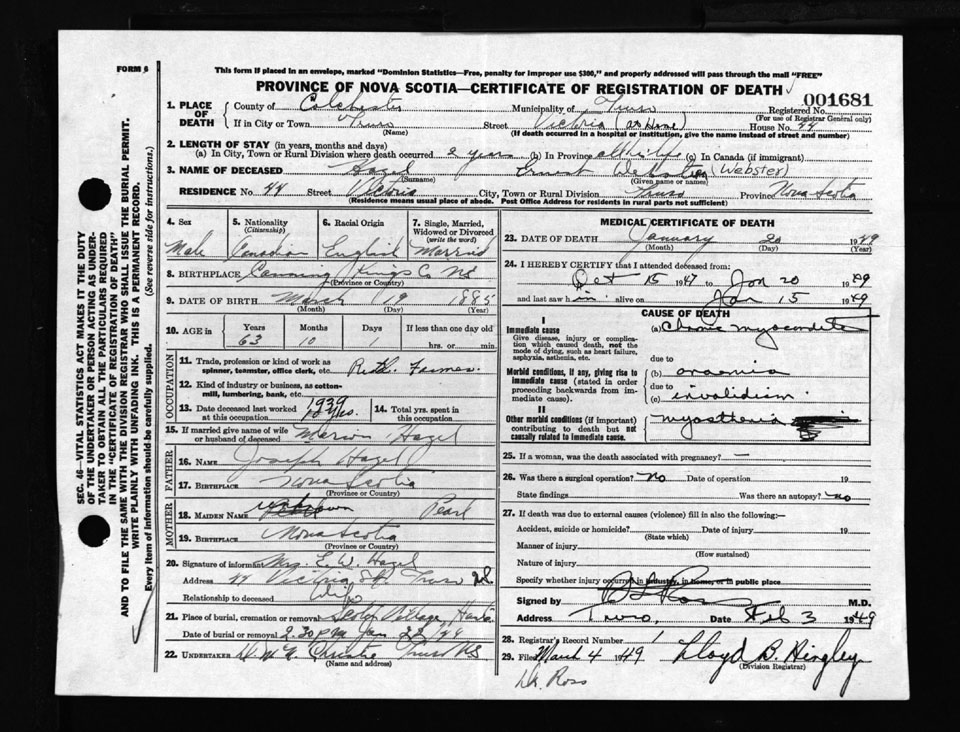 FORM 6
This form if placed in an envelope, marked "Dominion Statistics—Free, penalty for improper use $300," and properly addressed will pass through the mail "FREE"
PROVINCE OF NOVA SCOTIA—CERTIFICATE OF REGISTRATION OF DEATH
001681
1. PLACE OF DEATH County of Colchester Municipality of Truro Registered No.
(For use of Registrar General only)
If in City or Town Truro Street Victoria (at Home) House No. 44
(Name) (If death occurred in a hospital or institution, give the name instead of street and number)
2. LENGTH OF STAY (in years, months and days)
(a) In City, Town or Rural Division where death occurred 2 years (b) In Province all his life (c) In Canada (if immigrant)
3. NAME OF DECEASED Hazel Ernest Webster (Webster)
(Surname) (Given name or names)
RESIDENCE No. 44 Street Victoria City, Town or Rural Division Truro Province Nova Scotia
(Residence means usual place of abode. Post Office Address for residents in rural parts not sufficient)
4. Sex 5. Nationality (Citizenship) 6. Racial Origin 7. Single, Married, Widowed or Divorced (write the word)
Male Canadian English Married
8. BIRTHPLACE Canning Kings Co NS
(Province or Country)
9. DATE OF BIRTH March 19 1885
(Month) (Day) (Year)
10. AGE in Years Months Days If less than one day old
63 10 1 hrs. or min.
OCCUPATION
11. Trade, profession or kind of work as spinner, teamster, office clerk, etc. Retd. Farmer
12. Kind of industry or business, as cotton-mill, lumbering, bank, etc.
13. Date deceased last worked at this occupation 1939 10 yrs. 14. Total yrs. spent in this occupation
15. If married give name of wife or husband of deceased Marion Hazel
FATHER
16. NAME Joseph Hazel
17. BIRTHPLACE Nova Scotia
(Province or Country)
MOTHER
18. MAIDEN NAME Pearl
19. BIRTHPLACE Nova Scotia
(Province or Country)
20. Signature of informant Mrs. E. W. Hazel
Address 44 Victoria St. Truro N.S.
Relationship to deceased Wife
21. Place of burial, cremation or removal Scotch Village, Hants.
Date of burial or removal 2.30 P.M. Jan 22/49
22. UNDERTAKER Christie Truro NS
(Name and address)
MEDICAL CERTIFICATE OF DEATH
23. DATE OF DEATH January 20 1949
(Month) (Day) (Year)
24. I HEREBY CERTIFY that I attended deceased from:
Oct 15 1947 to Jan 20 1949
and last saw him alive on Jan 15 1949
CAUSE OF DEATH
I
Immediate cause
Give disease, injury or complication which caused death, not the mode of dying, such as heart failure, asphyxia, asthenia, etc.
(a) Chronic myocarditis
due to
Morbid conditions, if any, giving rise to immediate cause (stated in order proceeding backwards from immediate cause).
(b) anaemia
due to
(c) invalidism
II
Other morbid conditions (if important) contributing to death but not causally related to immediate cause.
myasthenia
25. If a woman, was the death associated with pregnancy? —
26. Was there a surgical operation? no Date of operation 19
State findings Was there an autopsy? no
27. If death was due to external causes (violence) fill in also the following:—
Accident, suicide or homicide? Date of injury 19
(State which)
Manner of injury
(How sustained)
Nature of injury
Specify whether injury occurred in industry, in home, or in public place
Signed by Ross M.D.
Address Truro. Date Feb 3 1949
28. Registrar's Record Number 1
29. Filed March 4 1949 Lloyd B. Hingley
(Division Registrar)
Dr. Ross
SEC. 46—VITAL STATISTICS ACT MAKES IT THE DUTY
OF THE UNDERTAKER OR PERSON ACTING AS UNDER-
TAKER TO OBTAIN ALL THE PARTICULARS REQUIRED
IN THE "CERTIFICATE OF REGISTRATION OF DEATH"
AND TO FILE THE SAME WITH THE DIVISION REGISTRAR WHO SHALL ISSUE THE BURIAL PERMIT.
WRITE PLAINLY WITH UNFADING INK. THIS IS A PERMANENT RECORD.
Every item of information should be carefully supplied. (See reverse side for instructions.)